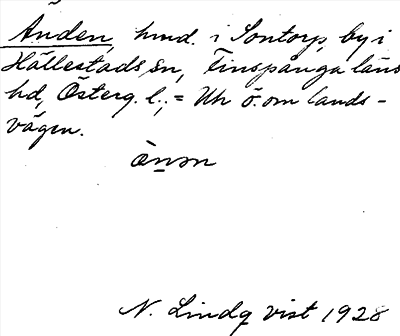 Änden, hmd. i Sontorp, by i
Hällestads sn, Finspånga läns
hd, Österg. l.; = Uh ö. om lands-
vägen.
N. Lindqvist 1928